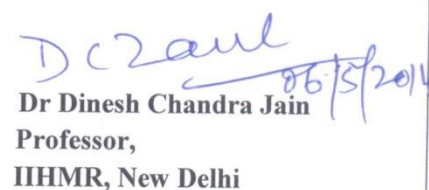 06/5/2011
Dr Dinesh Chandra Jain
Professor,
IIHMR, New Delhi